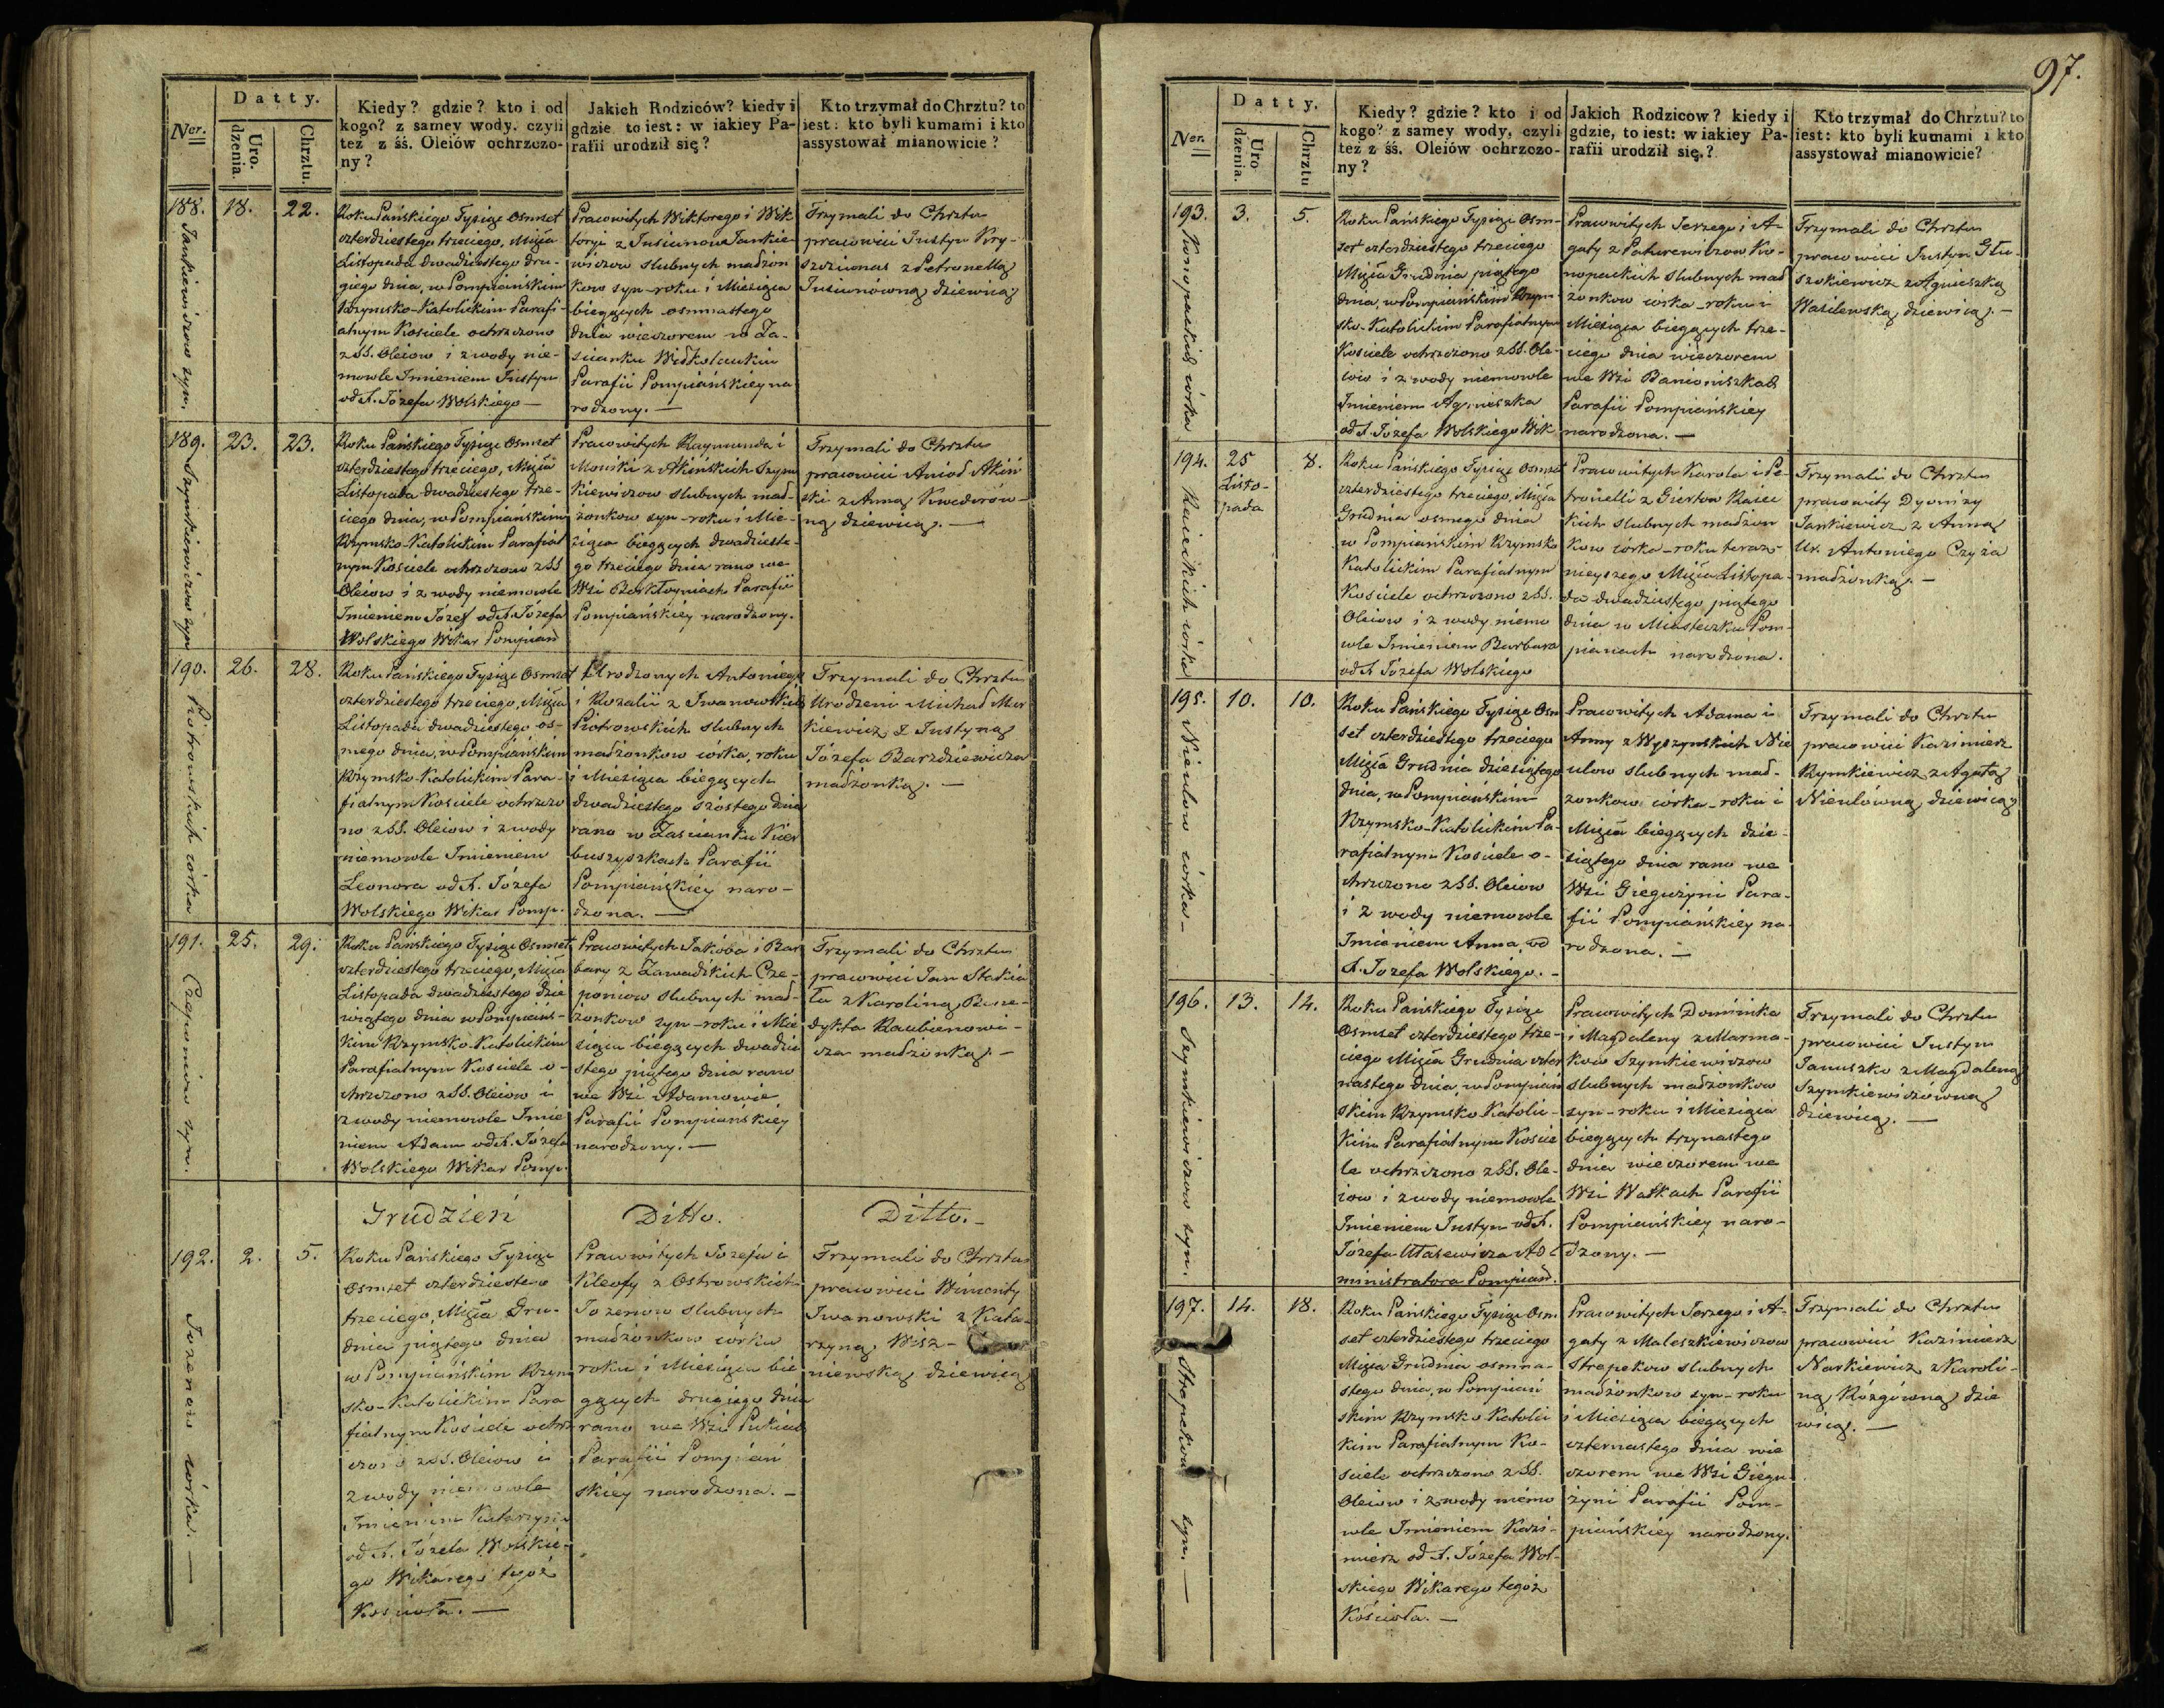 Datty.
Ner.
Uro.
dzenia.
Chrztu.
Kiedy? gdzie? kto i od
kogo? z samey wody, czyli
też z śś. Oleiów ochrzczo-
ny?
Jakich Rodziców? kiedy i
gdzie to iest: w iakiey Pa-
rafii urodził się?
Kto trzymał do Chrztu? to
iest: kto byli kumami i kto
assystował mianowicie?
188. 18. 22.
Jankiewiczow syn.
Roku Pańskiego Tysiąc Osmset
czterdziestego trzeciego, Msca
Listopada dwudziestego dru-
giego dnia, w Pompiańskim
Rzymsko-Katolickim Parafi-
alnym Kosciele ochrzczono
z SS. Oleiow i z wody nie-
mowle Imieniem Justyn
od X. Józefa Wolskiego —
Pracowitych Wiktorego i Wik
toryi z Jusiunow Jankie-
wiczow slubnych małżon
kow syn - roku i Miesiąca
bieżących osmnastego
dnia wieczorem w Za-
scianku
Parafii Pompiańskiey na
rodzony. —
Trzymali do Chrztu
pracowici Justyn Kry-
szciunas z Petronellą
Jusiunówną dziewicą
189. 23. 23.
Szymkiewiczow syn
Roku Pańskiego Tysiąc Osmset
czterdziestego trzeciego, Msca
Listopada dwudziestego trze-
ciego dnia, w Pompiańskim
Rzymsko-Katolickim Parafial
nym Kosciele ochrzczono z SS
Oleiow i z wody niemowle
Imieniem Józef od X. Józefa
Wolskiego Wikar Pompian
Pracowitych Raymunda i
Moniki z Akińskich Szym
kiewiczow slubnych mał-
żonkow syn - roku i Mie-
siąca bieżących dwudzieste-
go trzeciego dnia rano we
Wsi Parafii
Pompiańskiéy narodzony.
Trzymali do Chrztu
pracowici Anioł Akiń
ski z Anną Kwederów-
ną dziewicą. —
190. 26. 28.
Piotrowskich córka
Roku Pańskiego Tysiąc Osmset
czterdziestego trzeciego, Msca
Listopada dwudziestego os-
mego dnia, w Pompiańskim
Rzymsko-Katolickim Para-
fialnym Kosciele ochrzczo
no z SS. Oleiow i z wody
niemowle Imieniem
Leonora od X. Józefa
Wolskiego Wikar Pomp.
Urodzonych Antoniego
i Rozalii z Iwanowskich
Piotrowskich slubnych
małżonkow corka, roku
i Miesiąca bieżących
dwudziestego szostego dnia
rano w Zascianku Kier
buszyszkach Parafii
Pompiańskiéy naro-
dzona. —
Trzymali do Chrztu
Urodzeni Michał Mir
kiewicz z Justyną
Józefa Barzdziewicza
małżonką. —
191. 25. 29.
Czeponiow syn.
Roku Pańskiego Tysiąc Osmset
czterdziestego trzeciego, Msca
Listopada dwudziestego dzie
wiątego dnia w Pompians-
kim Rzymsko-Katolickim
Parafialnym Kosciele o-
chrzczono z SS. Oleiow i
z wody niemowle Imie
niem Adam od X. Józefa
Wolskiego Wikar Pomp.
Pracowitych Jakóba i Bar
bary z Zawadzkich Cze-
poniow slubnych mał-
żonkow syn - roku i Mie
siąca bieżących dwudzie
stego piątego dnia rano
we Wsi Adamowie
Parafii Pompiańskiéy
narodzony. —
Trzymali do Chrztu
pracowici Jan Stakia
ła z Karoliną Bene-
dykta Raubienowi-
cza małżonką. —
Grudzień
Ditto.
Ditto. -
192. 2. 5.
Jozenow córka. —
Roku Pańskiego Tysiąc
Osmset czterdziestego
trzeciego, Msca Gru-
dnia piątego dnia
w Pompiańskim Rzym
sko-Katolickim Para
fialnym Kosciele ochrz
czono z SS. Oleiow i
z wody niemowle
Imieniem Katarzyna
od X. Józefa Wolskie-
go Wikarego tegoż
Kosciola. —
Pracowitych Jozefa i
Kleofy z Ostrowskich
Jozenow slubnych
małżonkow córka
roku i Miesiąca bie
żących drugiego dnia
rano we Wsi
Parafii Pompiań
skiéy narodzona. —
Trzymali do Chrztu
pracowici Wincenty
Iwanowski z Kata-
rzyną Wisz-
niewską dziewicą
97.
Datty.
Ner.
Uro
dzenia.
Chrztu
Kiedy? gdzie? kto i od
kogo? z samey wody, czyli
też z śś. Oleiów ochrzczo-
ny?
Jakich Rodzicow? kiedy i
gdzie, to iest: w iakiey Pa-
rafii urodził się.?
Kto trzymał do Chrztu? to
iest: kto byli kumami i kto
assystował mianowicie?
193. 3. 5.
Konopackich córka
Roku Pańskiego Tysiąc Osm-
set czterdziestego trzeciego
Msca Grudnia piątego
dnia, w Pompiańskim Rzym
sko-Katolickim Parafialnym
Kosciele ochrzczono z SS. Ole-
iow i z wody niemowle
Imieniem Agnieszka
od X. Józefa Wolskiego Wik
Pracowitych Jerzego i A-
gaty z Paturewiczow Ko-
nopackich slubnych mał
żonkow córka - roku i
Miesiąca bieżących trze-
ciego dnia wieczorem
we Wsi Banioniszkach
Parafii Pompiańskiey
narodzona. —
Trzymali do Chrztu
pracowici Justyn Głu-
szkiewicz z Agnieszką
Wasilewską dziewicą. —
194. 25 Listo-
pada
8.
Raieckich córka
Roku Pańskiego Tysiąc Osmset
czterdziestego trzeciego, Msca
Grudnia osmego dnia
w Pompiańskim Rzymsko
Katolickim Parafialnym
Kosciele ochrzczono z SS.
Oleiow i z wody niemo
wle Imieniem Barbara
od X Józefa Wolskiego
Pracowitych Karola i Pe
tronelli z Raiec
kich slubnych małżon
kow córka - roku teraz-
nieyszego Msca Listopa-
da dwudziestego piątego
dnia w Miasteczku Pom-
pianach narodzona.
Trzymali do Chrztu
pracowity Dyonizy
Jankiewicz z Anną
Ur. Antoniego Czyża
małżonką. —
195. 10. 10.
Nieulow córka -
Roku Pańskiego Tysiąc Osm
set czterdziestego trzeciego
Msca Grudnia dziesiątego
dnia, w Pompianskim
Rzymsko-Katolickim Pa-
rafialnym Kosciele o-
chrzczono z SS. Oleiow
i z wody niemowle
Imieniem Anna, od
X. Jozefa Wolskiego. -
Pracowitych Adama i
Anny z Wyszynskich Nie
ulow slubnych mał-
zonkow córka - roku i
Msca bieżących dzie-
siątego dnia rano we
Wsi Giegużyni Para-
fii Pompiańskiéy na-
rodzona. —
Trzymali do Chrztu
pracowici Kazimierz
Rymkiewicz z Agatą
Nieulówną dziewicą
196. 13. 14.
Szymkiewiczow syn.
Roku Pańskiego Tysiąc
Osmset czterdziestego trze-
ciego Msca Grudnia czter
nastego dnia, w Pompian
skim Rzymsko-Katolic-
kim Parafialnym Koscie
le ochrzczono z SS. Ole-
iow i z wody niemowle
Imieniem Justyn od X.
Józefa Ułasewicza Ad
ministratora Pompian.
Pracowitych Dominika
i Magdaleny z Marma-
kow Szymkiewiczow
slubnych małżonkow
syn - roku i Miesiąca
bieżących trzynastego
dnia wieczorem we
Wsi Wałkach Parafii
Pompianskiey naro-
dzony. —
Trzymali do Chrztu
pracowici Justyn
Januszko z Magdaleną
Szymkiewiczówną
dziewicą. —
197. 14. 18.
Strapekow syn. —
Roku Pańskiego Tysiąc Osm
set czterdziestego trzeciego
Msca Grudnia osmna-
stego dnia, w Pompiań
skim Rzymsko Katolic
kim Parafialnym Ko-
sciele ochrzczono z SS.
Oleiow i z wody niemo
wle Imieniem Kazi-
mierz od X. Józefa Wol-
skiego Wikarego tegoż
Kościoła. —
Pracowitych Jerzego i A-
gaty z Maleszkiewiczow
Strapekow slubnych
małżonkow syn - roku
i Miesiąca bieżących
czternastego dnia wie
czorem we Wsi Giegu
żyni Parafii Pom-
piańskiey narodzony.
Trzymali do Chrztu
pracowici Kazimierz
Narkiewicz z Karoli-
ną Rózgówną dzie
wicą. —